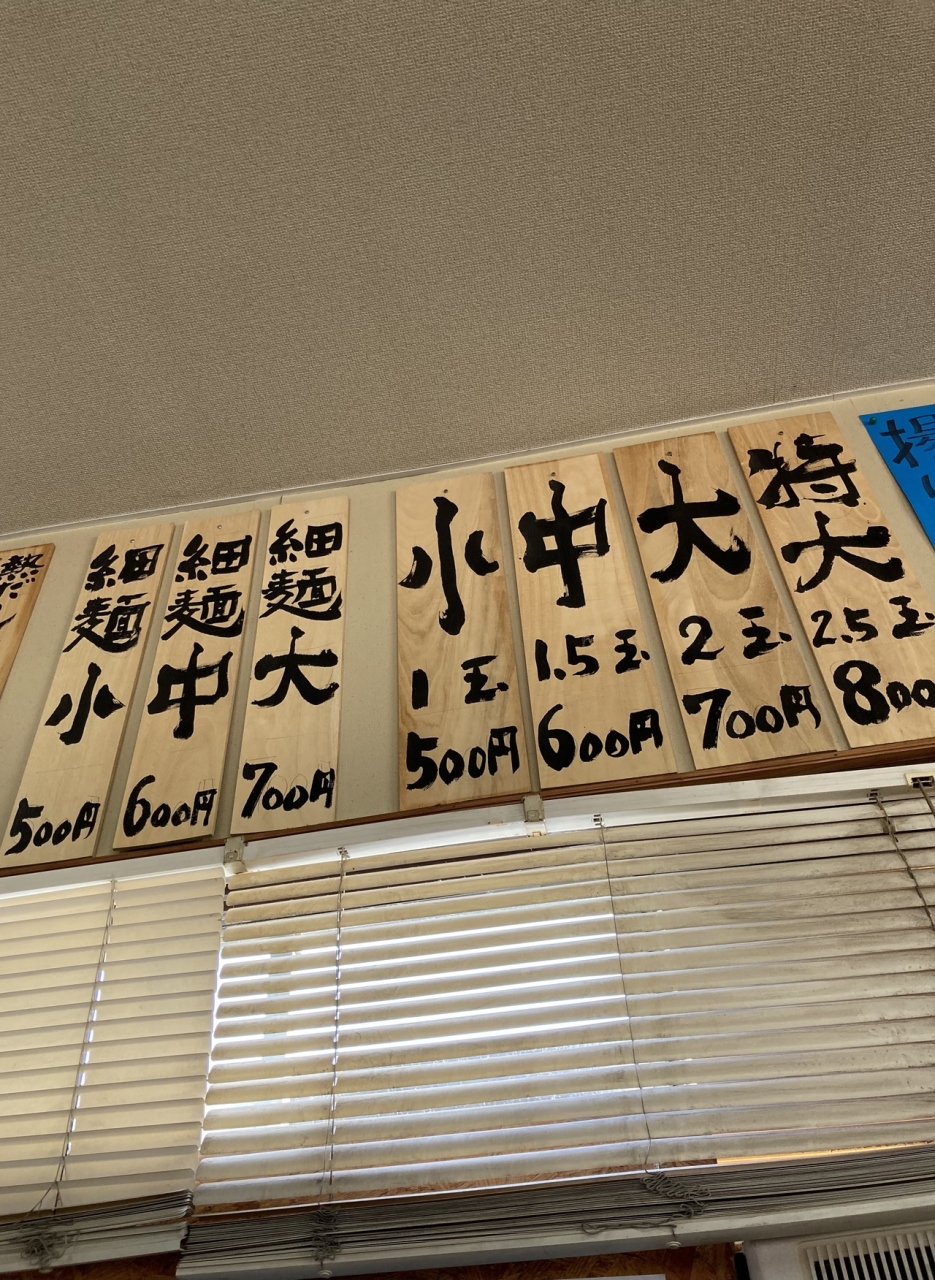 熱だし
細麺
小
500円
細麺
中
600円
細麺
大
700円
小
1玉
500円
中
1.5玉
600円
大
2玉
700円
特大
2.5玉
800